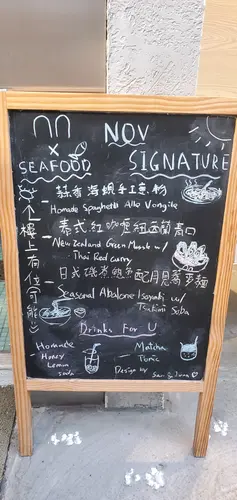 NOV
X
SEAFOOD
SIGNATURE
蒜香海蜆手工意粉
Homade Spaghetti Allo Vongile
泰式紅咖喱紐西蘭青口
New Zealand Green Mussle w/
Thai Red curry
日式磯煮鮑魚配月見蕎麥麵
Seasonal Abalone Isoyaki w/
Tsukimi Soba
樓上有位(可能)
Drinks For U
Homade
Honey
Lemon
Soda
Matcha
Tonic
Design by